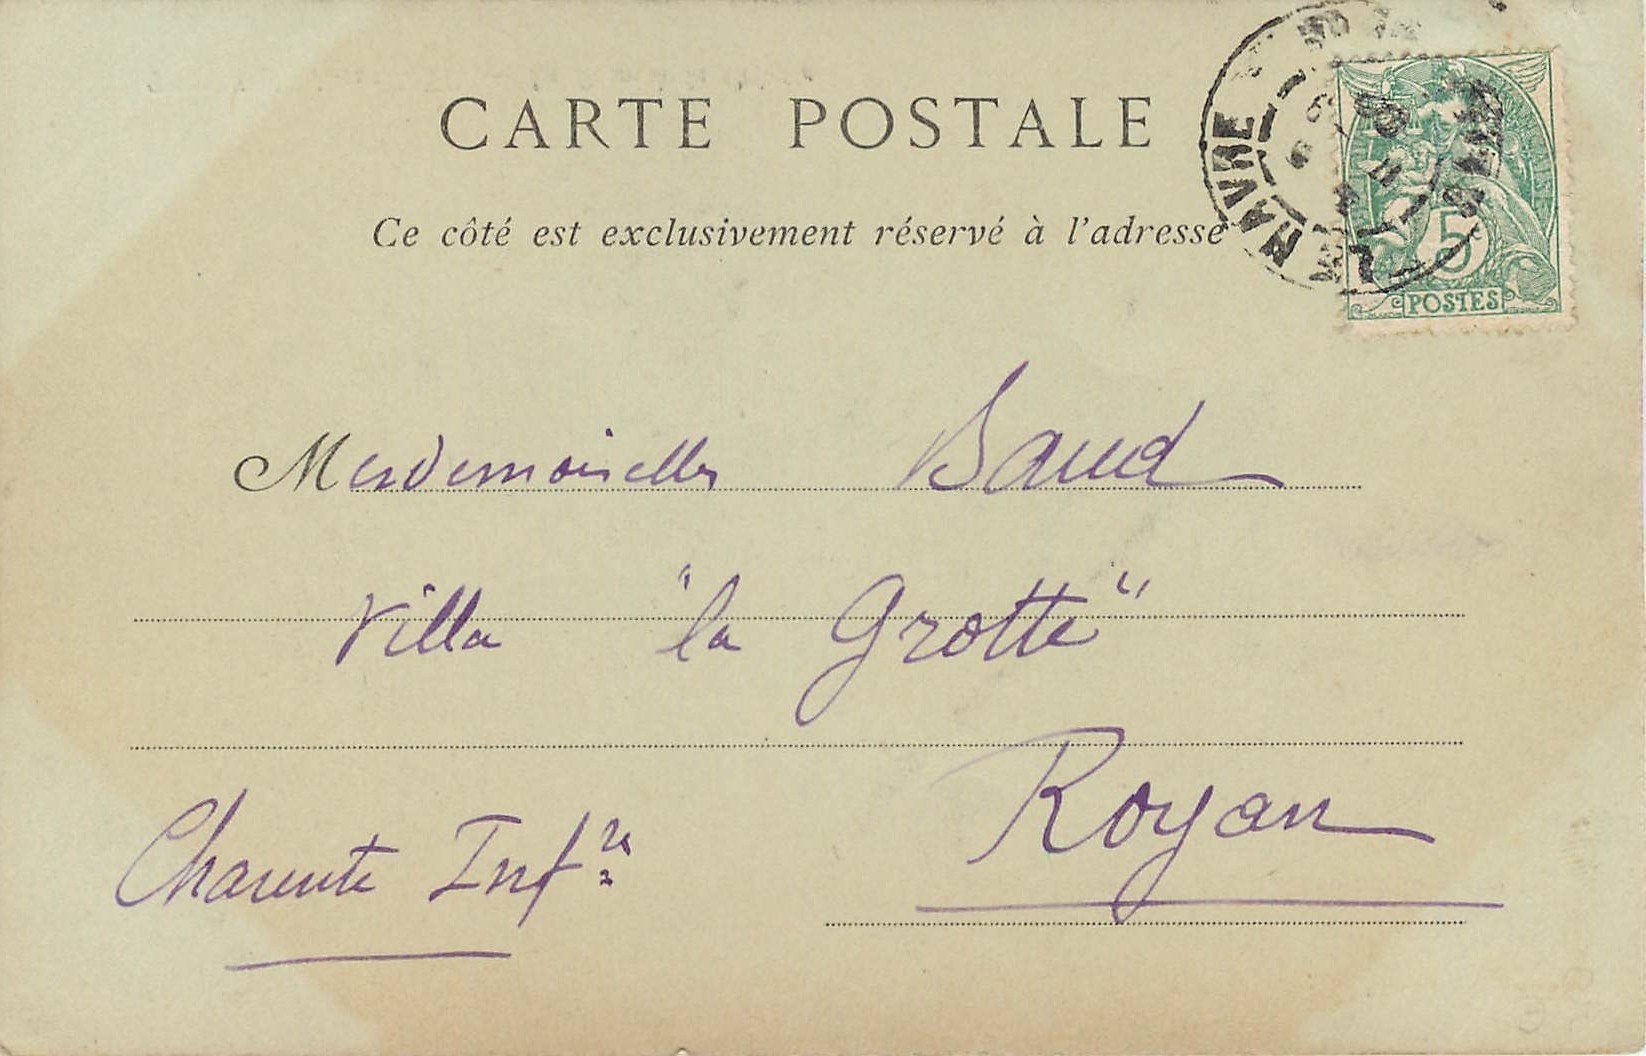 CARTE POSTALE
Ce côté est exclusivement réservé à l'adresse
HAVRE
5c
POSTES
Mesdemoiselles Baud
Villa "la Grotte"
Royan
Charente Infre